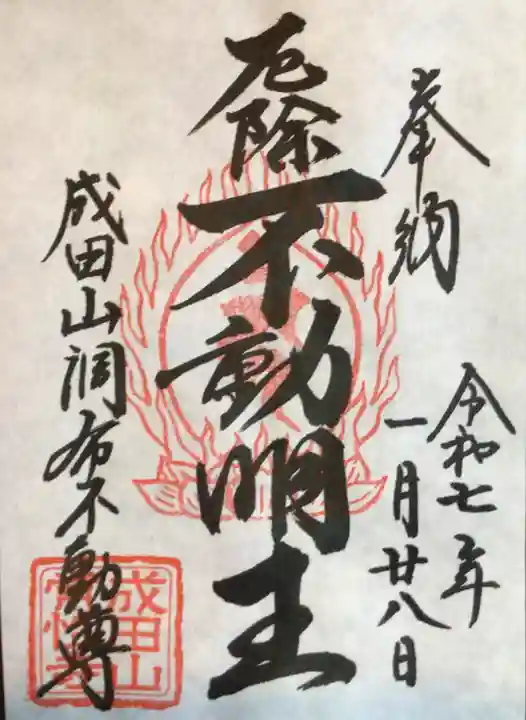 奉納
令和七年
一月廿八日
厄除
不動明王
成田山調布不動尊
成田山
常性寺